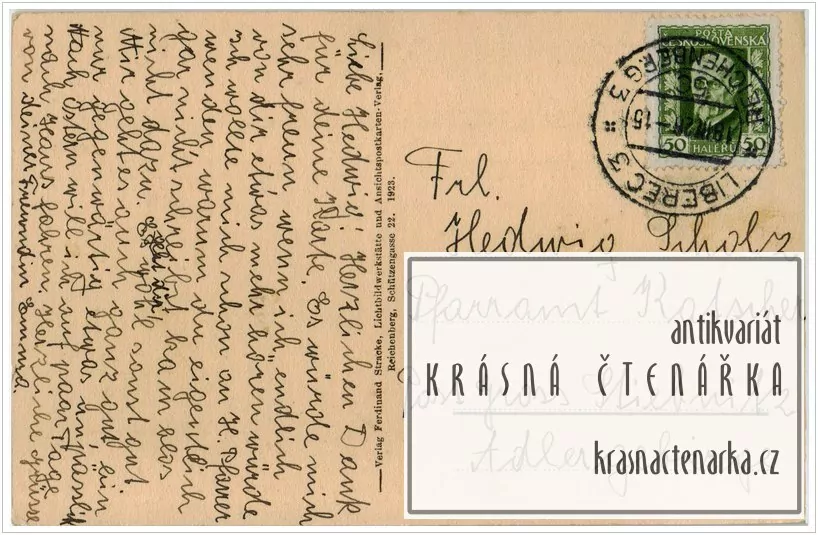 Liebe Hedwig! Herzlichen Dank
für deine Karte. Es würde mich
sehr freun wenn ich endlich
von dir etwas mehr hören würde
ich wollte mich schon an H. Pfarrer
wenden warum du eigentlich
gar nicht schreibst kam es
nicht dazu.
Mir geht es auch ganz gut
nur gegenwärtig etwas unpässlich
Nach Ostern will ich auf paar Tage
nach Haus fahren. Herzliche Grüsse
von deiner Freundin Emma.
Verlag Ferdinand Stracke, Lichtbildwerkstätte und Ansichtspostkarten-Verlag,
Reichenberg, Schützengasse 22. 1923.
POŠTA
ČESKOSLOVENSKÁ
50 HALÉŘŮ 50
LIBEREC 3
REICHENBERG 3
Frl.
Hedwig Scholz
Pfarramt Katscher
Post Gross Stiebnitz
Adlergebirge
antikvariát
KRÁSNÁ ČTENÁŘKA
krasnactenarka.cz